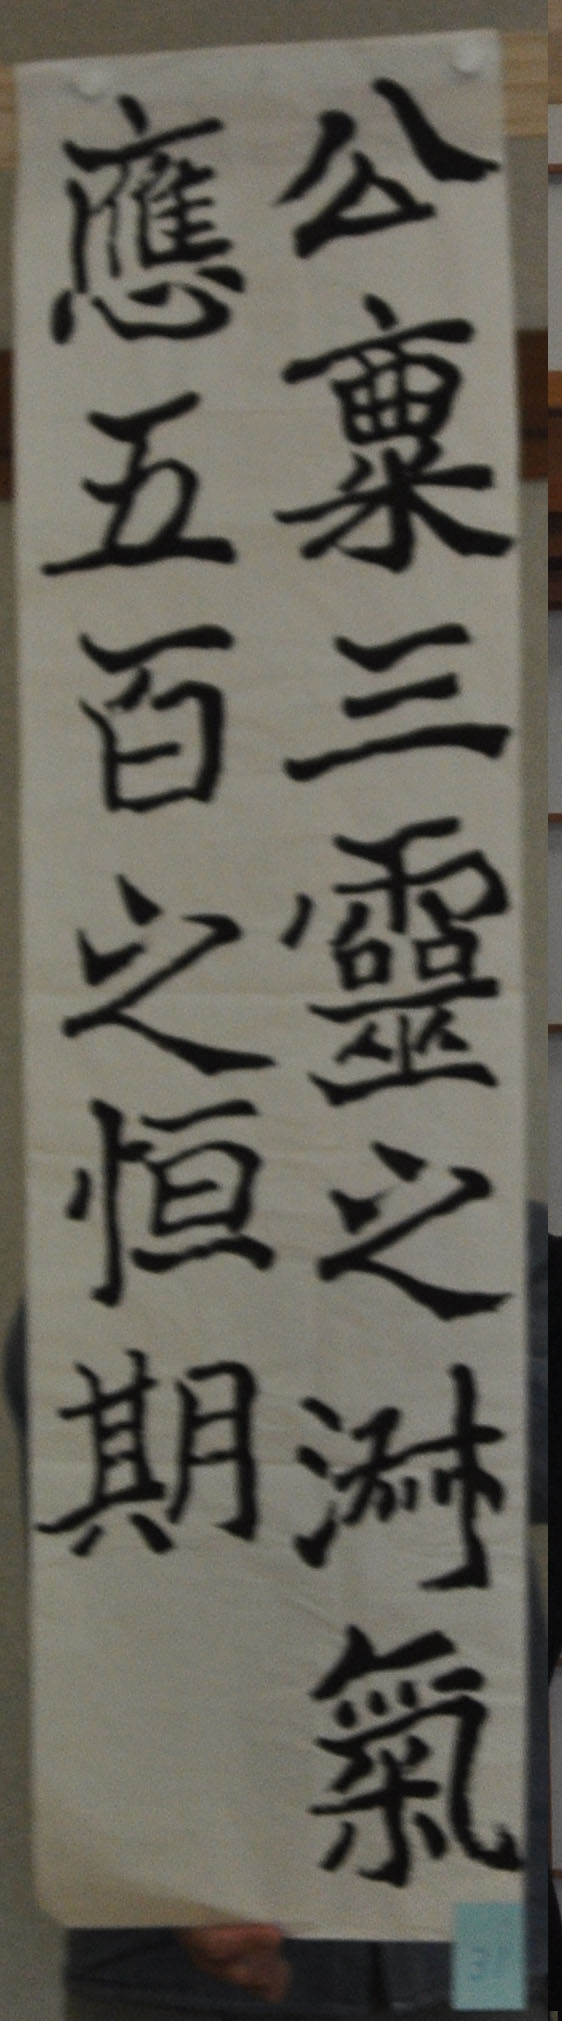 公稟三靈之淑氣
應五百之恒期